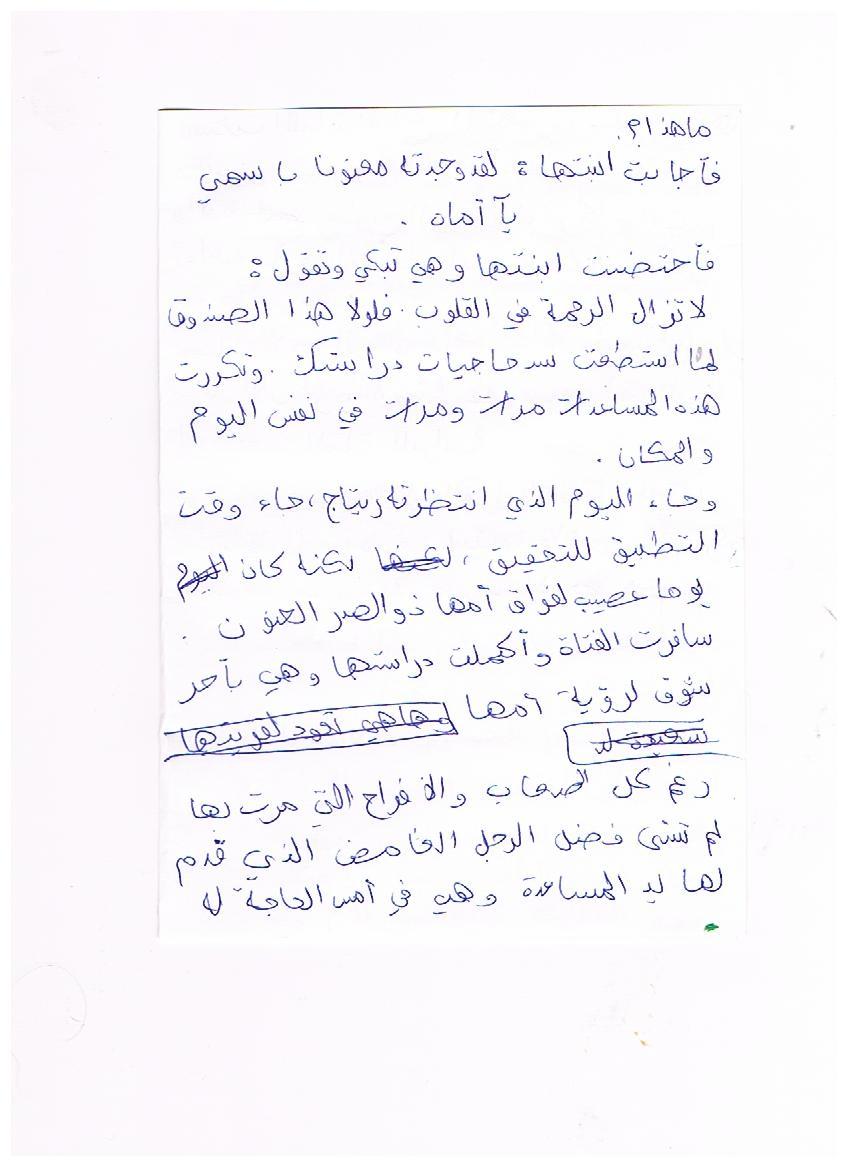 ما هذا؟.
فأجابت ابنتها: لقد وجدته معنونا باسمي
يآ أماه .
فآحتضنت ابنتها وهي تبكي وتقول:
لا تزال الرحمة في القلوب. فلولا هذا الصندوق
لما استطعت سد حاجيات دراستك. وتكررت
هذه المساعدات مرات ومرات في نفس اليوم
والمكان.
وجاء اليوم الذي انتظرته ريتاج، جاء وقت
التطبيق للتحقيق، لكنه كان اليوم
يوما عصيب لفراق أمها ذو الصبر الحنون.
سافرت الفتاة وأكملت دراستها وهي بآحر
شوق لرؤية أمها وهاهي تعود لقريتها
سعيدة لد
رغم كل الصعاب والافراح التي مرت بها
لم تنسى فضل الرجل الغامض الذي قدم
لها يد المساعدة وهي في أمس الحاجة له